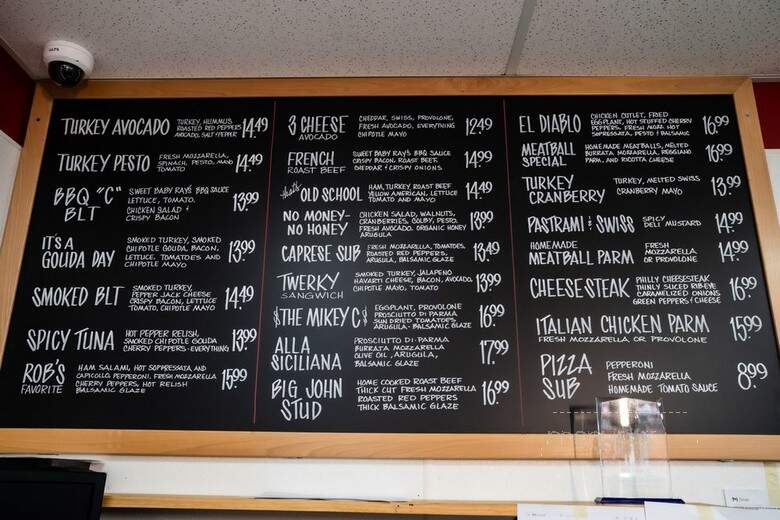 TURKEY AVOCADO TURKEY, HUMMUS 14.49
ROASTED RED PEPPERS
AVOCADO, SALT & PEPPER
TURKEY PESTO FRESH MOZZARELLA, 14.49
SPINACH, PESTO, MAYO
TOMATO
BBQ "C" SWEET BABY RAYS BBQ SAUCE 13.99
BLT LETTUCE, TOMATO,
CHICKEN SALAD &
CRISPY BACON
IT'S A SMOKED TURKEY, SMOKED 13.99
GOUDA DAY CHIPOTLE GOUDA, BACON,
LETTUCE, TOMATOES AND
CHIPOTLE MAYO
SMOKED BLT SMOKED TURKEY, 14.49
PEPPER JACK CHEESE
CRISPY BACON, LETTUCE
TOMATO, CHIPOTLE MAYO
SPICY TUNA HOT PEPPER RELISH, 13.99
SMOKED CHIPOTLE GOUDA
CHERRY PEPPERS - EVERYTHING
ROB'S HAM SALAMI, HOT SOPPRESSATA, AND 15.99
FAVORITE CAPICOLLO, PEPPERONI, FRESH MOZZARELLA
CHERRY PEPPERS, HOT RELISH
BALSAMIC GLAZE
3 CHEESE CHEDDAR, SWISS, PROVOLONE, 12.49
AVOCADO FRESH AVOCADO, EVERYTHING
CHIPOTLE MAYO
FRENCH SWEET BABY RAYS BBQ SAUCE 14.99
ROAST BEEF CRISPY BACON, ROAST BEEF,
CHEDDAR & CRISPY ONIONS
that's OLD SCHOOL HAM, TURKEY, ROAST BEEF 14.49
YELLOW AMERICAN, LETTUCE
TOMATO AND MAYO
NO MONEY- CHICKEN SALAD, WALNUTS, 13.99
NO HONEY CRANBERRIES, COLBY, PESTO,
FRESH AVOCADO, ORGANIC HONEY
ARUGULA
CAPRESE SUB FRESH MOZZARELLA, TOMATOES, 13.49
ROASTED RED PEPPERS,
ARUGULA, BALSAMIC GLAZE
TWERKY SMOKED TURKEY, JALAPENO 13.99
SANDWICH HAVARTI CHEESE, BACON, AVOCADO,
CHIPOTLE MAYO, TOMATO
$THE MIKEY C$ EGGPLANT, PROVOLONE 16.99
PROSCIUTTO DI PARMA
SUN DRIED TOMATOES,
ARUGULA - BALSAMIC GLAZE
ALLA PROSCIUTTO DI-PARMA 17.99
SICILIANA BURRATA MOZZARELLA
OLIVE OIL, ARUGULA,
BALSAMIC GLAZE
BIG JOHN HOME COOKED ROAST BEEF 16.99
STUD THICK CUT FRESH MOZZARELLA
ROASTED RED PEPPERS
THICK BALSAMIC GLAZE
EL DIABLO CHICKEN CUTLET, FRIED 16.99
EGGPLANT, HOT STUFFED CHERRY
PEPPERS - FRESH MOZA. HOT
SOPRESSATA, PESTO & BALSAMIC
MEATBALL HOMEMADE MEATBALLS, MELTED 16.99
SPECIAL BURRATA MOZARELLA, REGGIANO
PARM, AND RICOTTA CHEESE
TURKEY TURKEY, MELTED SWISS 13.99
CRANBERRY CRANBERRY MAYO
PASTRAMI & SWISS SPICY 14.99
DELI MUSTARD
HOMEMADE FRESH 14.99
MEATBALL PARM MOZZARELLA
OR PROVOLONE
CHEESESTEAK PHILLY CHEESESTEAK 16.99
THINLY SLICED RIBEYE
CARAMELIZED ONIONS
GREEN PEPPERS & CHEESE
ITALIAN CHICKEN PARM 15.99
FRESH MOZZARELLA OR PROVOLONE
PIZZA PEPPERONI 8.99
SUB FRESH MOZZARELLA,
HOMEMADE TOMATO SAUCE